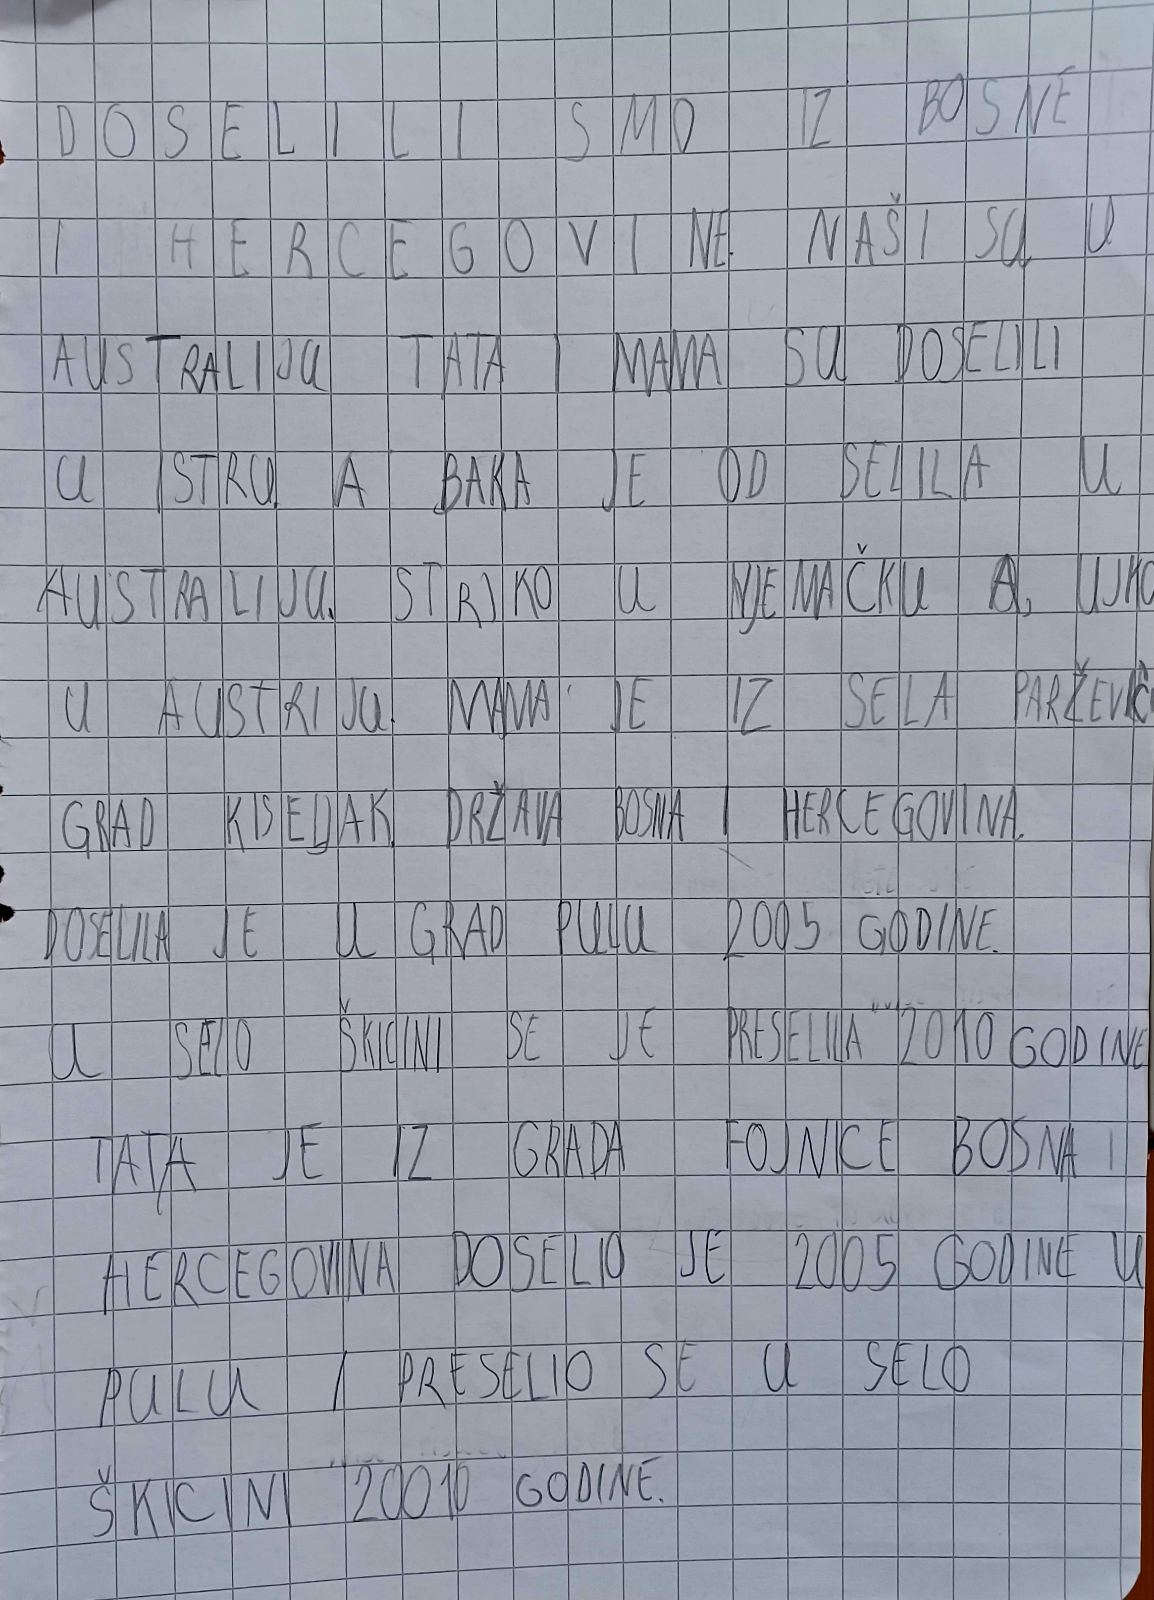 DOSELILI SMO IZ BOSNE
I HERCEGOVINE. NAŠI SU U
AUSTRALIJU TATA I MAMA SU DOSELILI
U ISTRU, A BAKA JE OD SELILA U
AUSTRALIJU. STRIKO U NJEMAČKU A, UJKO
U AUSTRIJU. MAMA JE IZ SELA PARŽEVIĆ
GRAD KISELJAK DRŽAVA BOSNA I HERCEGOVINA.
DOSELILA JE U GRAD PULU 2005 GODINE.
U SELO ŠKICINI SE JE PRESELILA 2010 GODINE
TATA JE IZ GRADA FOJNICE BOSNA I
HERCEGOVINA DOSELIO JE 2005 GODINE U
PULU I PRESELIO SE U SELO
ŠKICINI 20010 GODINE.